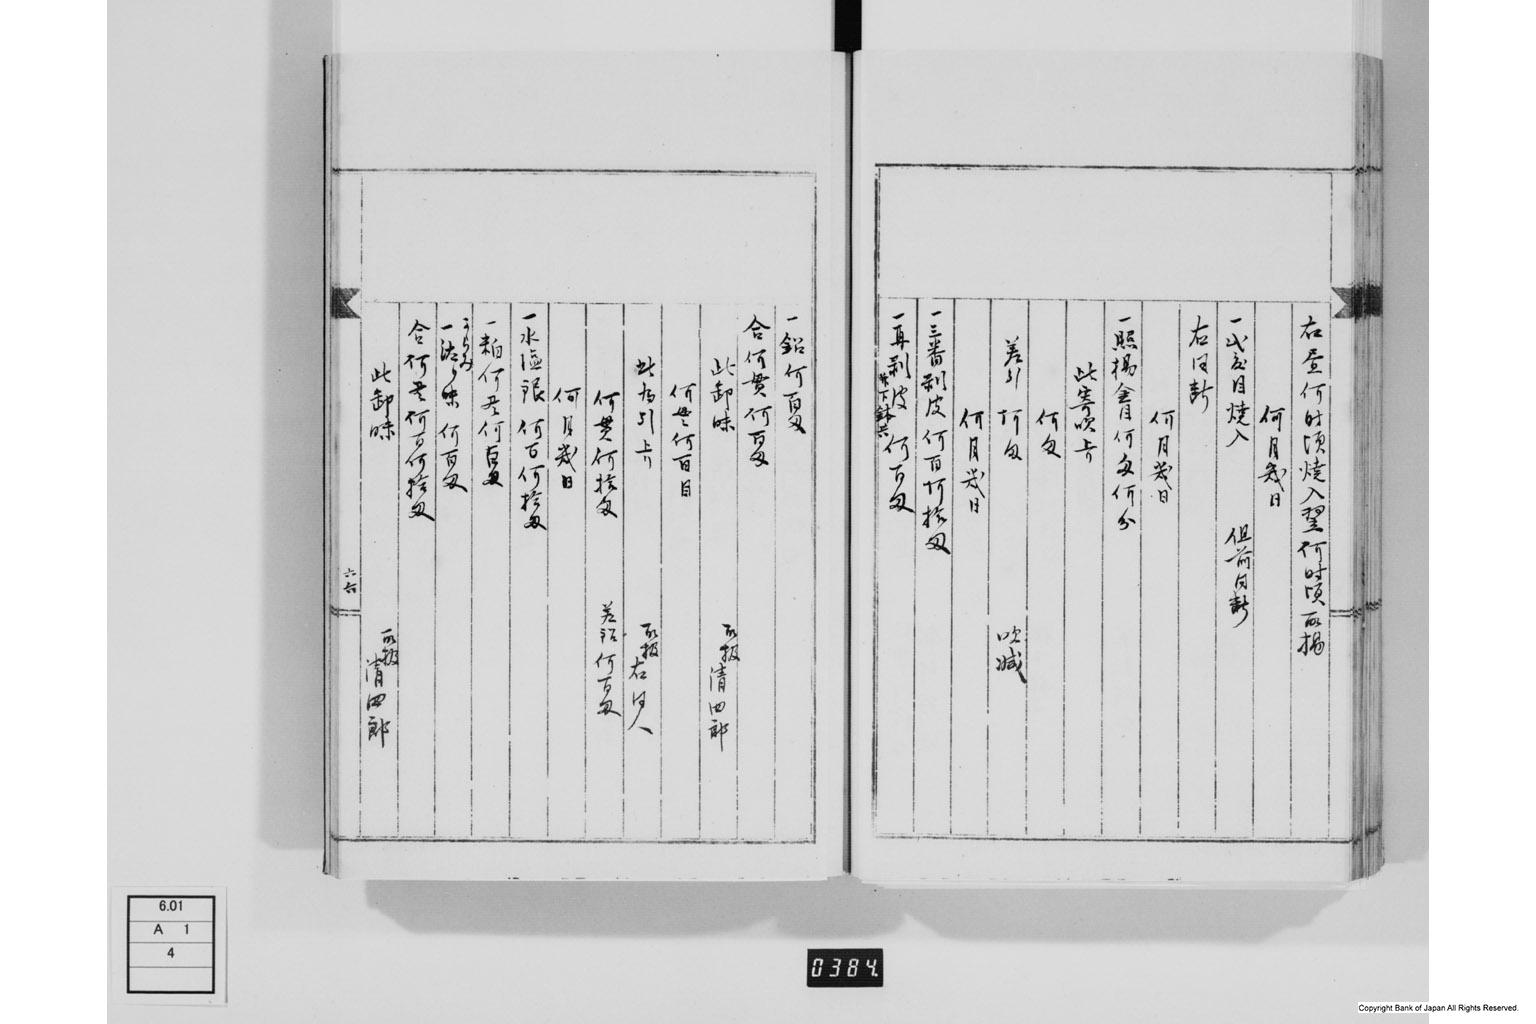 右昼何時頃焼入翌何時頃取揚
何月幾日
一弐度目焼入
但前同断
右同断
何月幾日
一照揚金目何匁何分
此寄吹卆
何匁
差引 何匁
吹減
何月幾日
一三番剥皮何百何拾匁
一耳剥皮 何百匁
一鉛何百匁
合何貫何百匁
此卸味
取扱 清四郎
何貫何百目
此為引卆
取扱 右同人
何貫何拾匁
差銀何百匁
何月幾日
一水塩銀 何百何拾匁
一粕何貫何百匁
一 味 何百匁
合何貫何百何拾匁
此卸味
取扱 清四郎
六六
6.01
A 1
4
0384
Copyright Bank of Japan All Rights Reserved.